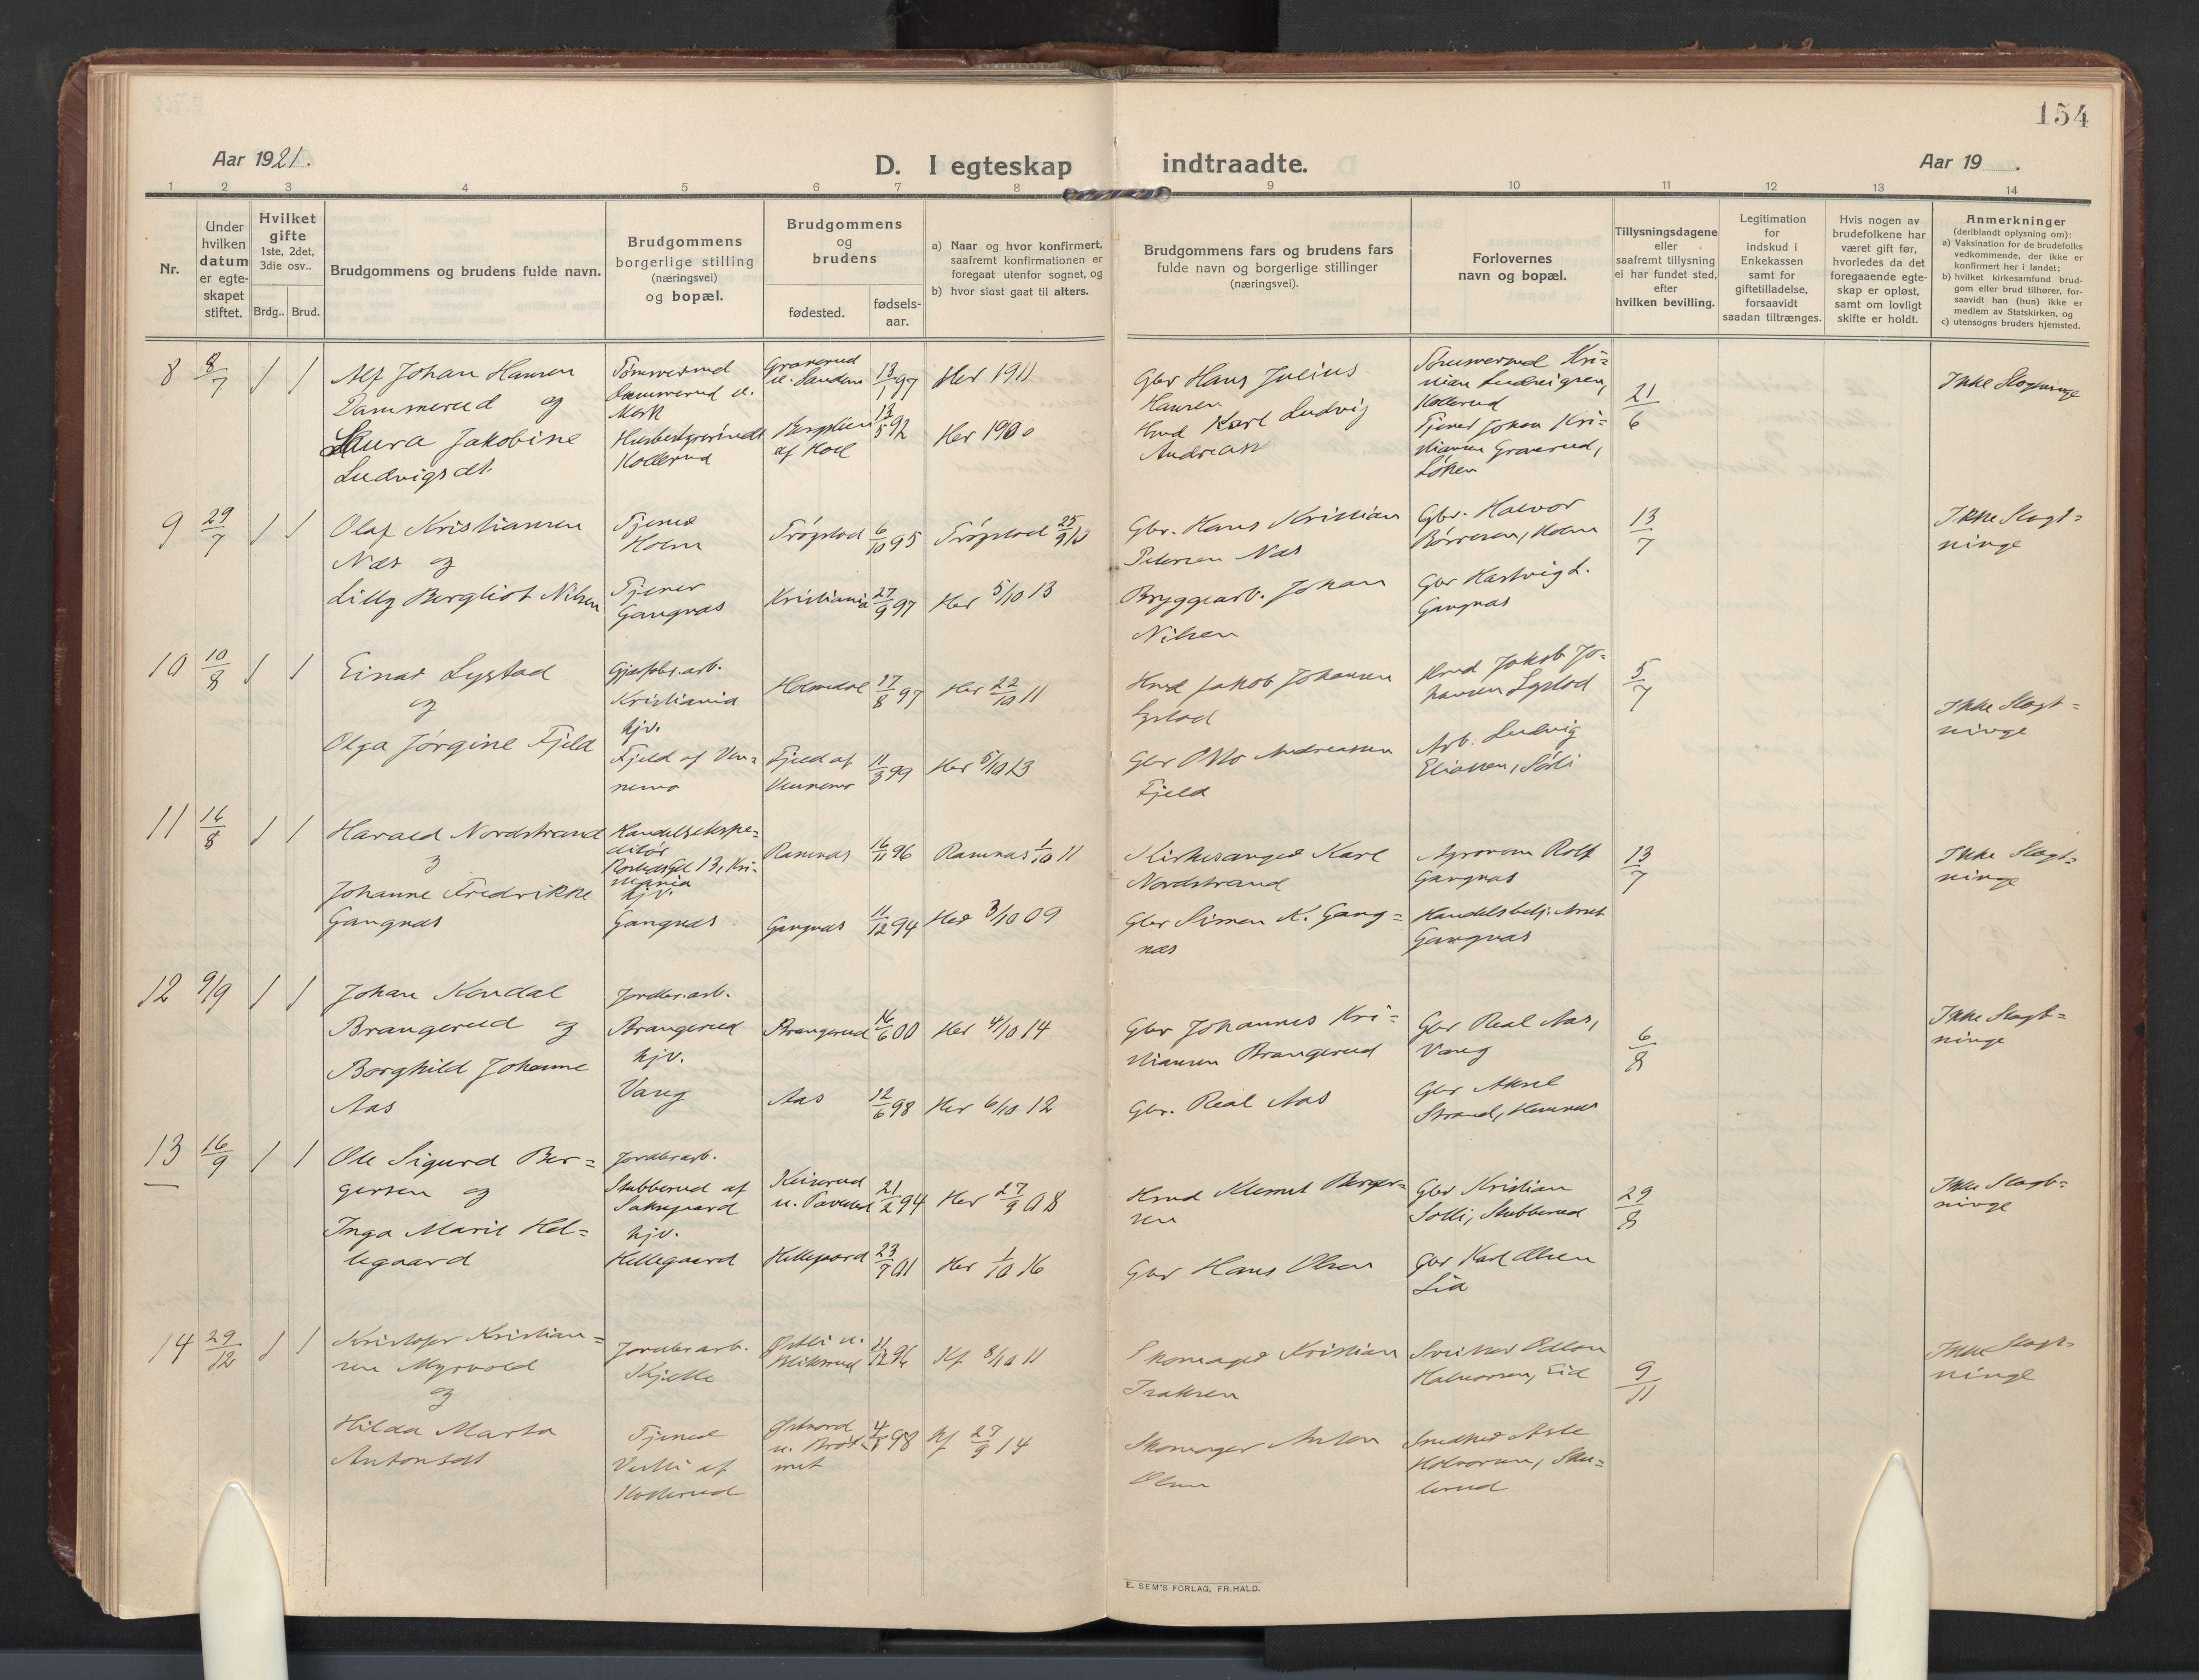 154
Aar 1921.
D. I egteskap indtraadte.
Aar 19 .
1 2 3 4 5 6 7 8 9 10 11 12 13 14
Nr.
Under
hvilken
datum
er egte-
skapet
stiftet.
Hvilket
gifte
1ste, 2det,
3die osv..
Brdg.. Brud.
Brudgommens og brudens fulde navn.
Brudgommens
borgerlige stilling
(næringsvei)
og bopæl.
Brudgommens
og
brudens
fødested.
fødsels-
aar.
a) Naar og hvor konfirmert,
saafremt konfirmationen er
foregaat utenfor sognet, og
b) hvor sidst gaat til alters.
Brudgommens fars og brudens fars
fulde navn og borgerlige stillinger
(næringsvei).
Forlovernes
navn og bopæl.
Tillysningsdagene
eller
saafremt tillysning
ei har fundet sted,
efter
hvilken bevilling.
Legitimation
for
indskud i
Enkekassen
samt for
giftetilladelse,
forsaavidt
saadan tiltrænges.
Hvis nogen av
brudefolkene har
været gift før,
hvorledes da det
foregaaende egte-
skap er opløst,
samt om lovligt
skifte er holdt.
Anmerkninger
(deriblandt oplysning om):
a) Vaksination for de brudefolks
vedkommende, der ikke er
konfirmert her i landet;
b) hvilket kirkesamfund brud-
gom eller brud tilhører, for-
saavidt han (hun) ikke er
medlem av Statskirken, og
c) utensogns bruders hjemsted.
8 8/7 1 1
Alf Johan Hansen
Dammerud og
Laura Jakobine
Ludvigsdt.
Dammerud u.
Mork
Kollerud
Graverud
13/1 97
13/5 92
Her 1911
Her 1900
Gbr Hans Julius
Hansen
Hmd Karl Ludvig
Andreas
Kollerud
Tjener Johan Kri-
stiansen Graverud,
Løken
21/6
Ikke Slegtninge
9 29/7 1 1
Olaf Kristiansen
Næs og
Lilly Bergliot Nilsen
Tjener
Holm
Tjener
Gangnæs
Trøgstad 6/10 95
Kristiania 27/9 97
Trøgstad 25/9 10
Her 5/10 13
Gbr. Hans Kristian
Petersen Næs
Bryggearb. Johan
Nilsen
Gbr. Halvor
Børresen, Holm
Gbr Hartvig L.
Gangnæs
13/7
Ikke Slegt=
ninge
10 10/8 1 1
Einar Lystad
og
Olga Jørgine Fjeld
Kristiania
hjv.
Fjeld af Ven=
nemo
Holmedal 17/8 97
Fjeld af
Vennemo 11/3 99
Her 22/10 11
Her 5/10 13
Hmd Jakob Johansen
Lystad
Gbr Otto Andreassen
Fjeld
Hmd Jakob Jo-
hansen Lystad
Arb. Ludvig
Eliassen, Solli
5/7
Ikke Slegt=
ninge
11 16/8 1 1
Harald Nordstrand
og
Johanne Fredrikke
Gangnæs
Handelsekspe=
ditør
13, Kri-
stiania
hjv.
Gangnæs
Ramnæs 16/11 96
Gangnæs 11/12 94
Ramnæs 1/10 11
Her 3/10 09
Kirkesanger Karl
Nordstrand
Gbr Simen K. Gang=
næs
Agronom Rolf
Gangnæs
Handelsbetj. Arnt
Gangnæs
13/7
Ikke Slegt=
ninge
12 9/9 1 1
Johan Kondal
Brangerud og
Borghild Johanne
Aas
Jordbr.arb.
Brangerud
hjv.
Vang
Brangerud 16/6 00
Aas 12/6 98
Her 4/10 14
Her 6/10 12
Gbr Johannes Kri=
stiansen Brangerud
Gbr. Real Aas
Gbr Real Aas,
Vang
Gbr Aksel
Strand, Hemnes
6/8
Ikke Slegt=
ninge
13 16/9 1 1
Ole Sigurd Ber=
gersen og
Inga Marie Hel=
legaard
Jordbr.arb.
Stubberud af
hjv.
Hellegaard
21/2 94
Hellegaard 23/7 01
Her 27/9 08
Her 1/10 16
Hmd Klemet Berger=
sen
Gbr Hans Olsen
Gbr Kristian
Solli, Stubberud
Gbr Karl Olsen
Lia
29/8
Ikke Slegt=
ninge
14 29/12 1 1
Kristofer Kristian=
sen Myrvold
og
Hilda Marta
Antonsdt
Jordbr.arb.
Kjelle
Tjener
Kollerud
11/12 96
98
Kf 8/10 11
Kf 27/9 14
Skomager Kristian
Isaksen
Skomager Anton
Olsen
Halvorsen, Eid
Snedker Asle
Halvorsen, Sku=
lerud
9/11
Ikke Slegt=
ninge
E. SEM'S FORLAG, FR.HALD.